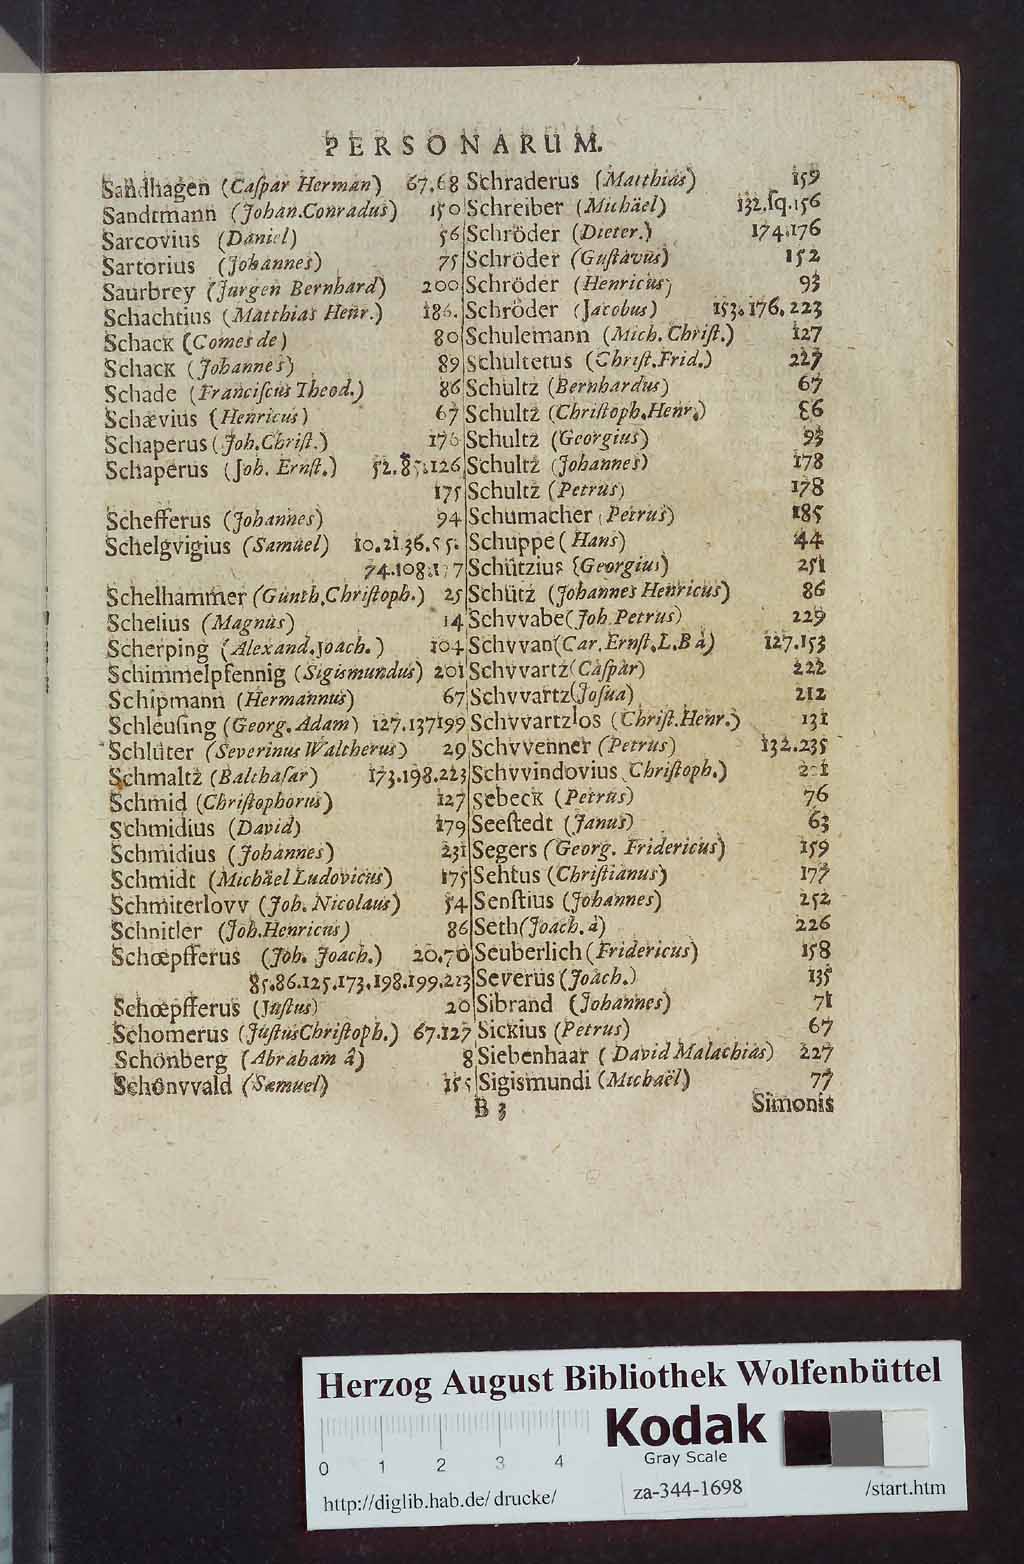 PERSONARUM.
Sandhagen (Caſpar Herman) 67.68
Sandtmann (Johan.Conradus) 150
Sarcovius (Daniel) 56
Sartorius (Johannes) 75
Saurbrey (Jurgen Bernhard) 200
Schachtius (Matthias Henr.) 186.
Schack (Comes de) 80
Schack (Johannes) 89
Schade (Franciſcus Theod.) 86
Schævius (Henricus) 67
Schaperus (Joh.Chriſt.) 176
Schaperus (Joh. Ernſt.) 52.85.126
175
Schefferus (Johannes) 94
Schelgvigius (Samuel) 10.21.36.55.
74.108.177
Schelhammer (Gunth.Chriſtoph.) 25
Schelius (Magnus) 14
Scherping (Alexand.Joach.) 104
Schimmelpfennig (Sigismundus) 201
Schipmann (Hermannus) 67
Schleuſing (Georg.Adam) 127.137199
Schlüter (Severinus Waltherus) 29
Schmaltz (Balthaſar) 173.198.223
Schmid (Chriſtophorus) 127
Schmidius (David) 179
Schmidius (Johannes) 231
Schmidt (Michäel Ludovicus) 175
Schmiterlovv (Joh. Nicolaus) 54
Schnitler (Joh.Henricus) 86
Schœpfferus (Joh. Joach.) 20.70
85.86.125.173.198.199.223
Schœpfferus (Juſtus) 20
Schomerus (Juſtus Chriſtoph.) 67.127
Schönberg (Abraham â) 8
Schönvvald (Samuel) 155
Schraderus (Matthias) 159
Schreiber (Michäel) 132.ſq.156
Schröder (Dieter.) 174.176
Schröder (Guſtavus) 152
Schröder (Henricus) 93
Schröder (Jacobus) 153.176.223
Schulemann (Mich. Chriſt.) 127
Schultetus (Chriſt.Frid.) 227
Schultz (Bernhardus) 67
Schultz (Chriſtoph.Henr.) 86
Schultz (Georgius) 93
Schultz (Johannes) 178
Schultz (Petrus) 178
Schumacher (Petrus) 185
Schuppe (Hans) 44
Schützius (Georgius) 251
Schütz (Johannes Henricus) 86
Schvvabe (Joh.Petrus) 229
Schvvan (Car.Ernſt.L.B à) 127.153
Schvvartz (Caſpar) 222
Schvvartz (Joſua) 212
Schvvartzlos (Chriſt.Henr.) 131
Schvvenner (Petrus) 132.235
Schvvindovius Chriſtoph.)
Sebeck (Petrus) 76
Seeſtedt (Janus) 63
Segers (Georg. Fridericus) 159
Sehtus (Chriſtianus) 177
Senſtius (Johannes) 252
Seth (Joach. à) 226
Seuberlich (Fridericus) 158
Severus (Joach.) 135
Sibrand (Johannes) 71
Sickius (Petrus) 67
Siebenhaar (David Malachias) 227
Sigismundi (Michaël) 77
B 3 Simonis
Herzog August Bibliothek Wolfenbüttel
Kodak
Gray Scale
0 1 2 3 4
http://diglib.hab.de/drucke/ za-344-1698 /start.htm